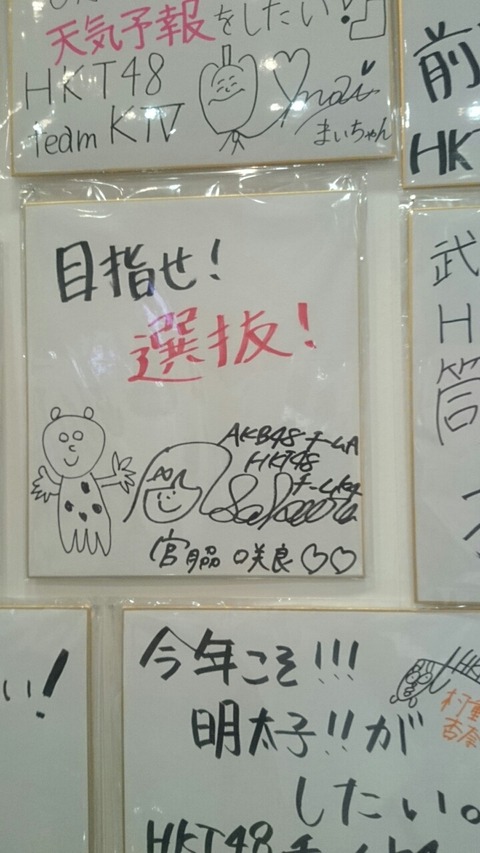 天気予報をしたい!
HKT48
Team KⅣ
まいちゃん
前
HKT
目指せ!
選抜!
AKB48 チームA
HKT48
チームK4
宮脇 咲良♡♡
武
H
筒
い!
今年こそ!!!
明太子!!が
したい。
村重
杏奈
HKT48